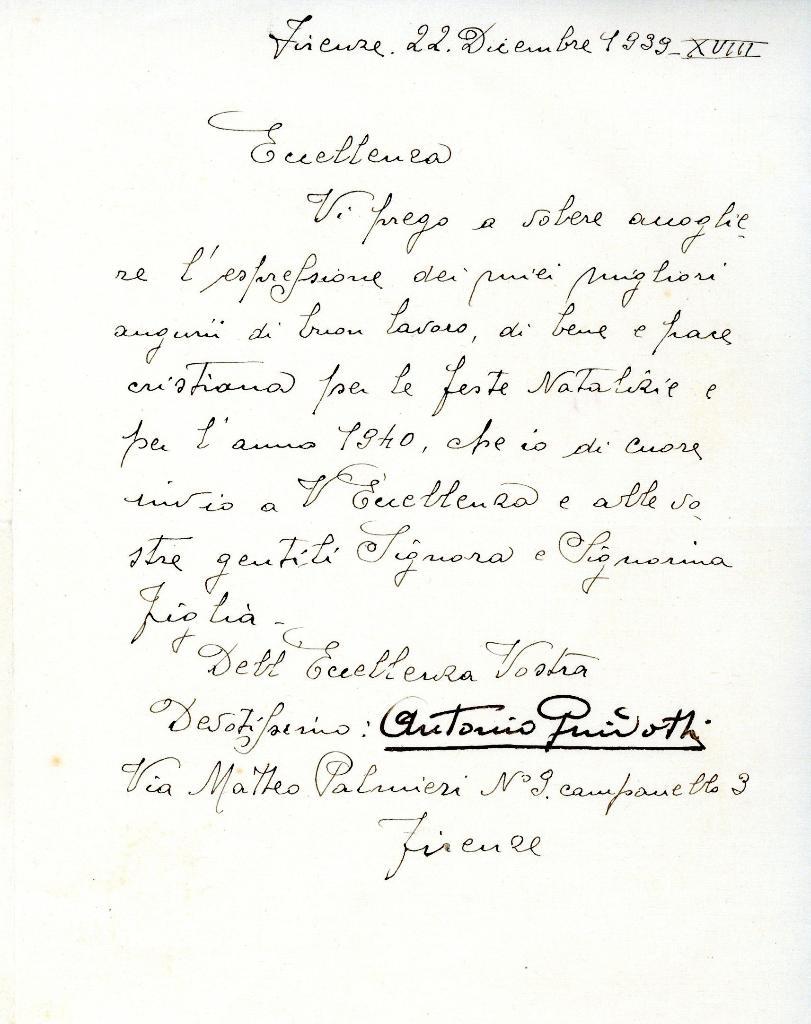 Firenze. 22. Dicembre 1939_XVIII
Eccellenza
Vi prego a volere accoglie_
re l'espressione dei miei migliori
augurii di buon lavoro, di bene e pace
cristiana per le feste Natalizie e
per l'anno 1940, che io di cuore
invio a V Eccellenza e alle vo_
stre gentili Signora e Signorina
figlia_
Dell Eccellenza Vostra
Devotissimo: Antonio Guidotti
Via Matteo Palmieri Nº 9. campanello 3
Firenze